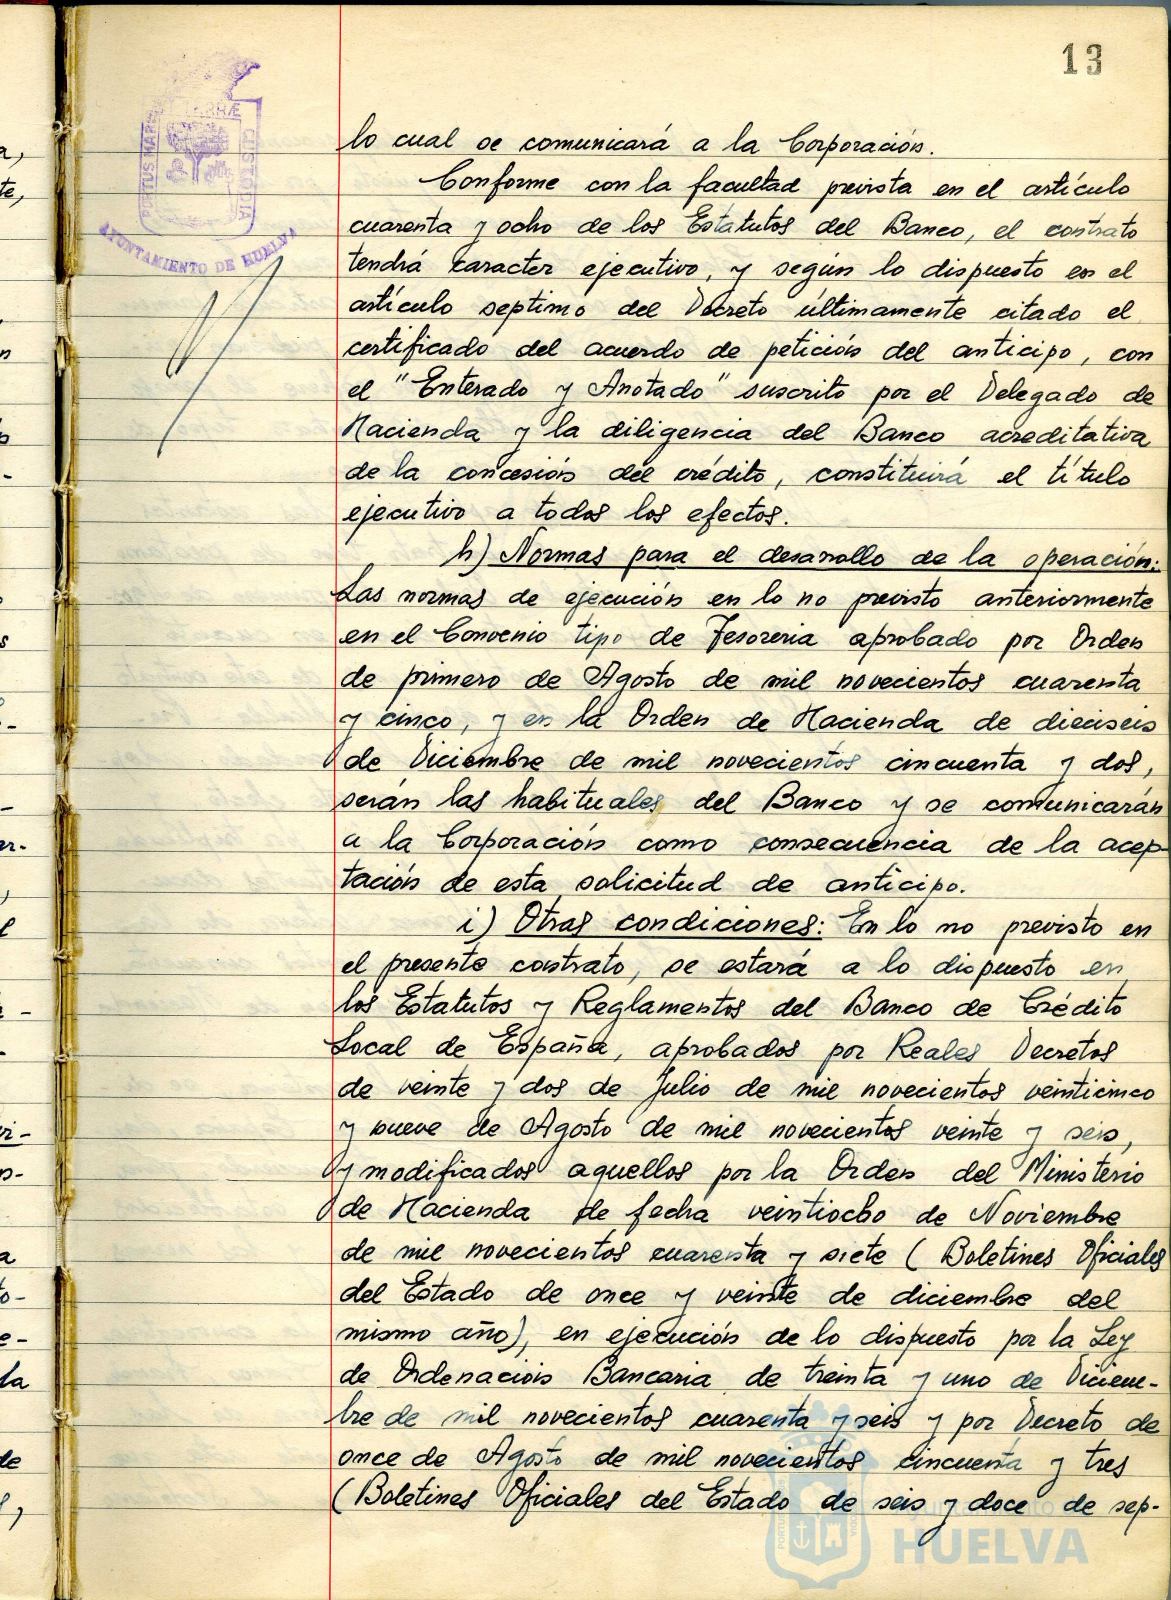 13
PORTUS MARIS ET TERRÆ CUSTODIA
AYUNTAMIENTO DE HUELVA
lo cual se comunicará a la Corporación.
Conforme con la facultad prevista en el artículo
cuarenta y ocho de los Estatutos del Banco, el contrato
tendrá caracter ejecutivo, y según lo dispuesto en el
artículo septimo del Decreto últimamente citado el
certificado del acuerdo de petición del anticipo, con
el "Enterado y Anotado" suscrito por el Delegado de
Hacienda y la diligencia del Banco acreditativa
de la concesión del crédito, constituirá el título
ejecutivo a todos los efectos.
h) Normas para el desarrollo de la operación:
Las normas de ejecución en lo no previsto anteriormente
en el Convenio tipo de Tesoreria aprobado por Orden
de primero de Agosto de mil novecientos cuarenta
y cinco, y en la Orden de Hacienda de dieciseis
de Diciembre de mil novecientos cincuenta y dos,
serán las habituales del Banco y se comunicarán
a la Corporación como consecuencia de la acep-
tación de esta solicitud de anticipo.
i) Otras condiciones: En lo no previsto en
el presente contrato, se estará a lo dispuesto en
los Estatutos y Reglamentos del Banco de Crédito
Local de España, aprobados por Reales Decretos
de veinte y dos de Julio de mil novecientos veinticinco
y nueve de Agosto de mil novecientos veinte y seis,
y modificados aquellos por la Orden del Ministerio
de Hacienda de fecha veintiocho de Noviembre
de mil novecientos cuarenta y siete (Boletines Oficiales
del Estado de once y veinte de diciembre del
mismo año), en ejecución de lo dispuesto por la Ley
de Ordenación Bancaria de treinta y uno de Diciem-
bre de mil novecientos cuarenta y seis y por Decreto de
once de Agosto de mil novecientos cincuenta y tres
(Boletines Oficiales del Estado de seis y doce de sep-
Ayuntamiento de
HUELVA